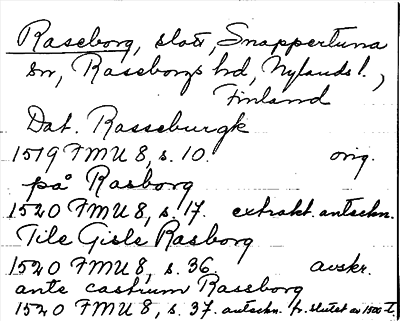 Raseborg, slott, Snappertuna
sn, Raseborgs hrd, Nylands l.,
Finland
Dat. Rasseburgk
1519 FMU 8, s. 10. orig.
på Rasborg
1520 FMU 8, s. 17. extrakt. antechn.
Tile Gisle Rasborg
1520 FMU 8, s. 36. avskr.
ante castrum Rassborg
1520 FMU 8, s. 37. antechn. fr. slutet av 1500-t.